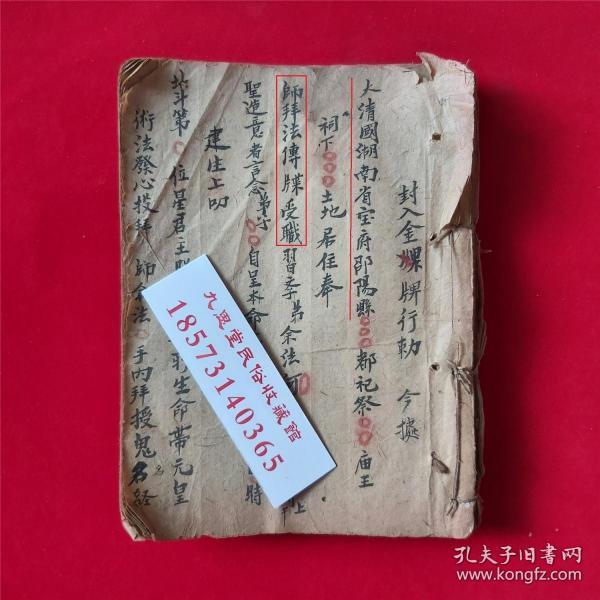 封入金牌行勅 今據
大清國湖南省宝府邵陽縣○○○都祀祭○○庙王
祠下○○○土地居住奉
師拜法傳牒受職習李弟余法
聖造意者言念弟子○○自呈本命 時
建生上叩
北斗第○位星君王 生命帯元皇
術法發心投拜 師余法○手内拜授鬼名経
九思堂民俗收藏館
18573140365
孔夫子旧书网
www.kongfz.com